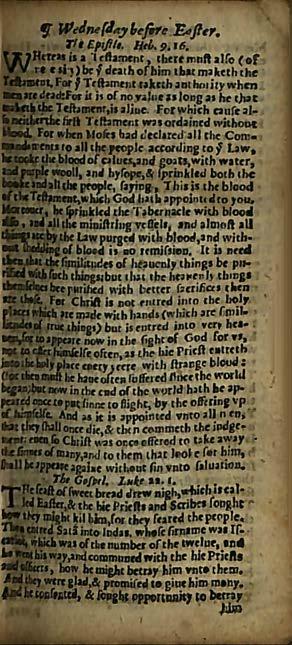 ¶ Wedneſday before Eaſter.
The Epiſtle. Heb. 9. 16.
WHereas is a Teſtament, there muſt alſo (of
neceſsity) be ẏ death of him that maketh the
Teſtament. For ẏ Teſtament taketh authority when
men are dead: For it is of no value as long as he that
maketh the Teſtament, is aliue. For which cauſe al-
ſo neither the firſt Teſtament was ordained without
blood. For when Moſes had declared all the Com-
mandements to all the people according to ẏ Law,
he tooke the blood of calues, and goats, with water,
and purple wooll, and hyſope, & ſprinkled both the
booke and all the people, ſaying, This is the blood
of the Teſtament, which God hath appointed to you.
Moreouer, he ſprinkled the Tabernacle with blood
alſo, and all the miniſtring veſſels, and almoſt all
things are by the Law purged with blood, and with-
out ſhedding of blood is no remiſsion. It is need
then that the ſimilitudes of heauenly things be pu-
rified with ſuch things: but that the heauenly things
themſelues bee purified with better ſacrifices then
are thoſe. For Chriſt is not entred into the holy
places which are made with hands (which are ſimil-
itudes of true things) but is entred into very hea-
uen, for to appeare now in the ſight of God for vs,
not to offer himſelfe often, as the hie Prieſt entreth
into the holy place euery yeere with ſtrange blood:
(for then muſt he haue often ſuffered ſince the world
began) but now in the end of the world hath he ap-
peared once to put ſinne to flight, by the offering vp
of himſelfe. And as it is appointed vnto all men,
that they ſhall once die, & then commeth the iudge-
ment: euen ſo Chriſt was once offered to take away
the ſinnes of many, and to them that looke for him,
ſhall he appeare againe without ſin vnto ſaluation.
The Goſpel. Luke 22. 1.
THe feaſt of ſweet bread drew nigh, which is cal-
led Eaſter, & the hie Prieſts and Scribes ſought
how they might kil him, for they feared the people.
Then entred Satā into Iudas, whoſe ſirname was Iſc-
ariot, which was of the number of the twelue, and
he went his way, and communed with the hie Prieſts
and officers, how he might betray him vnto them.
And they were glad, & promiſed to giue him mony.
And he conſented, & ſought opportunity to betray
him